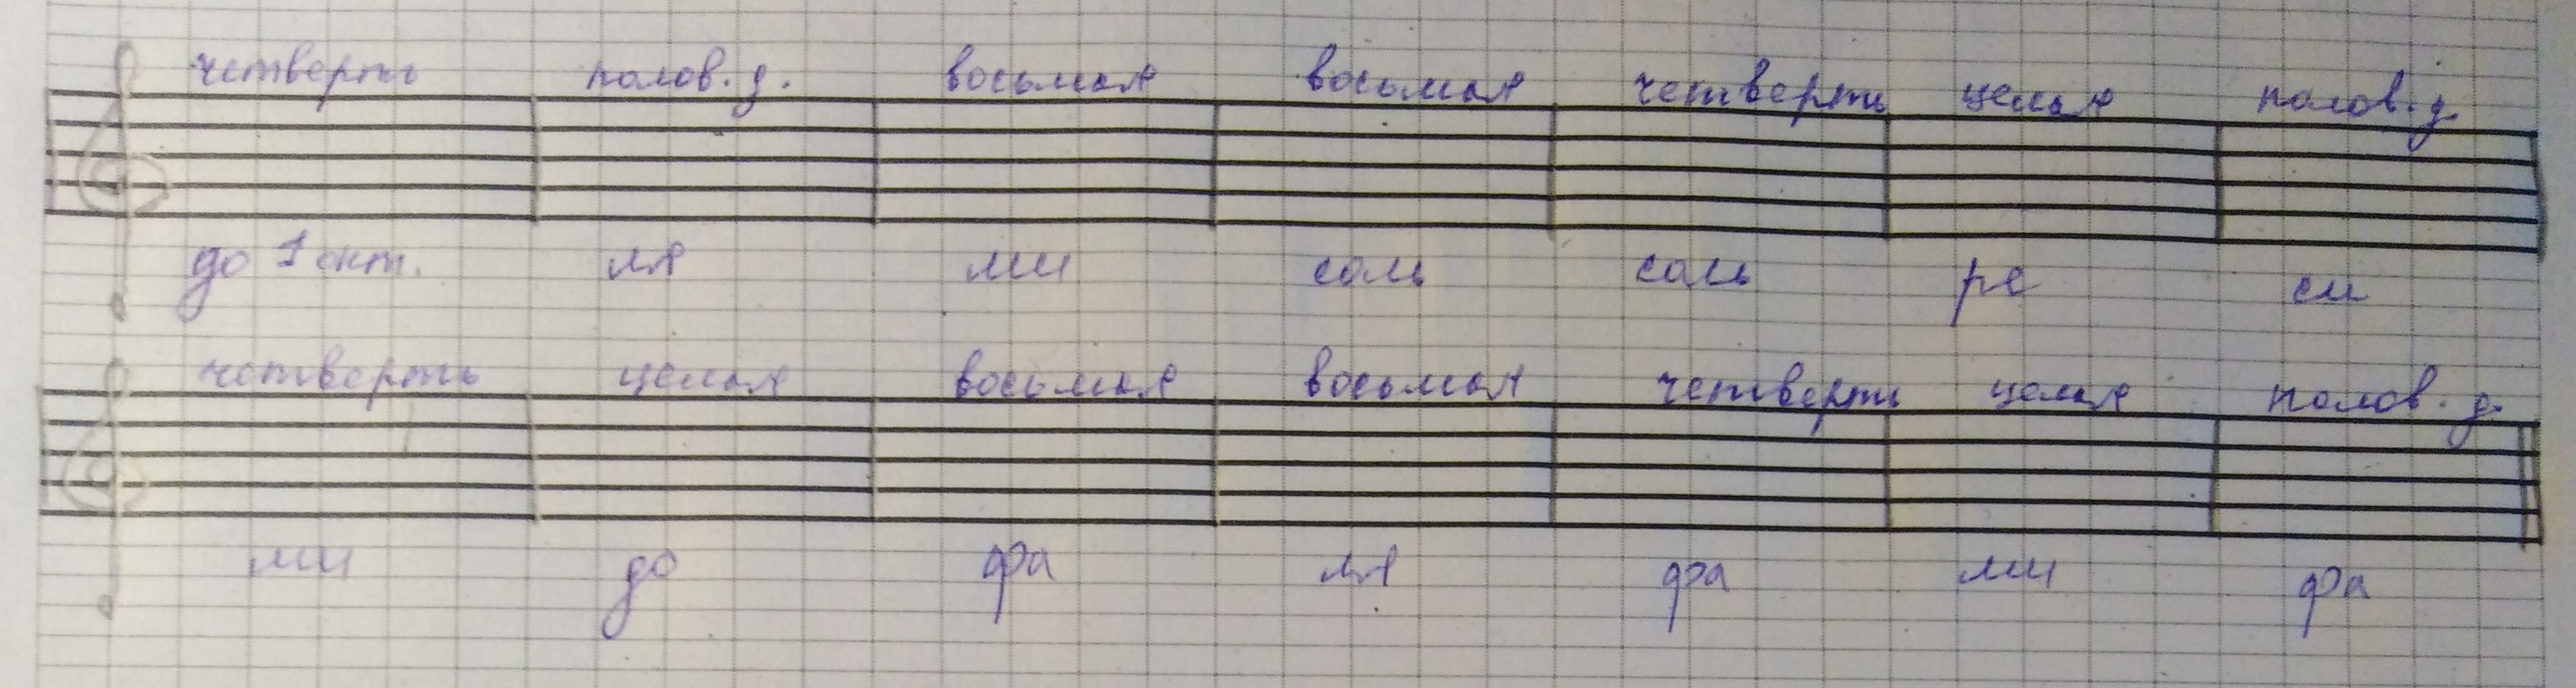 четверть полов. д. восьмая восьмая четверть целая полов. д.
до 1 окт. ля ми соль соль ре си
четверть целая восьмая восьмая четверть целая полов. д.
ми до фа ля фа ми фа